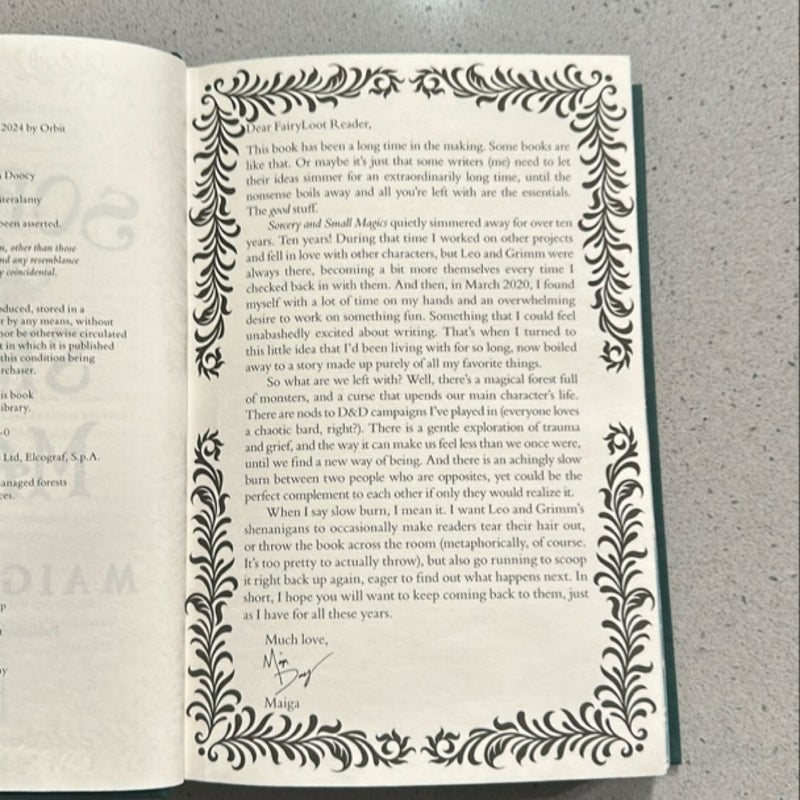 2024 by Orbit
Doocy
iteralamy
been asserted.
n, other than those
nd any resemblance
y coincidental.
oduced, stored in a
r by any means, without
nor be otherwise circulated
t in which it is published
this condition being
rchaser.
is book
ibrary.
-0
Ltd, Elcograf, S.p.A.
anaged forests
ces.
Dear FairyLoot Reader,
This book has been a long time in the making. Some books are
like that. Or maybe it's just that some writers (me) need to let
their ideas simmer for an extraordinarily long time, until the
nonsense boils away and all you're left with are the essentials.
The good stuff.
Sorcery and Small Magics quietly simmered away for over ten
years. Ten years! During that time I worked on other projects
and fell in love with other characters, but Leo and Grimm were
always there, becoming a bit more themselves every time I
checked back in with them. And then, in March 2020, I found
myself with a lot of time on my hands and an overwhelming
desire to work on something fun. Something that I could feel
unabashedly excited about writing. That's when I turned to
this little idea that I'd been living with for so long, now boiled
away to a story made up purely of all my favorite things.
So what are we left with? Well, there's a magical forest full
of monsters, and a curse that upends our main character's life.
There are nods to D&D campaigns I've played in (everyone loves
a chaotic bard, right?). There is a gentle exploration of trauma
and grief, and the way it can make us feel less than we once were,
until we find a new way of being. And there is an achingly slow
burn between two people who are opposites, yet could be the
perfect complement to each other if only they would realize it.
When I say slow burn, I mean it. I want Leo and Grimm's
shenanigans to occasionally make readers tear their hair out,
or throw the book across the room (metaphorically, of course.
It's too pretty to actually throw), but also go running to scoop
it right back up again, eager to find out what happens next. In
short, I hope you will want to keep coming back to them, just
as I have for all these years.
Much love,
Maiga